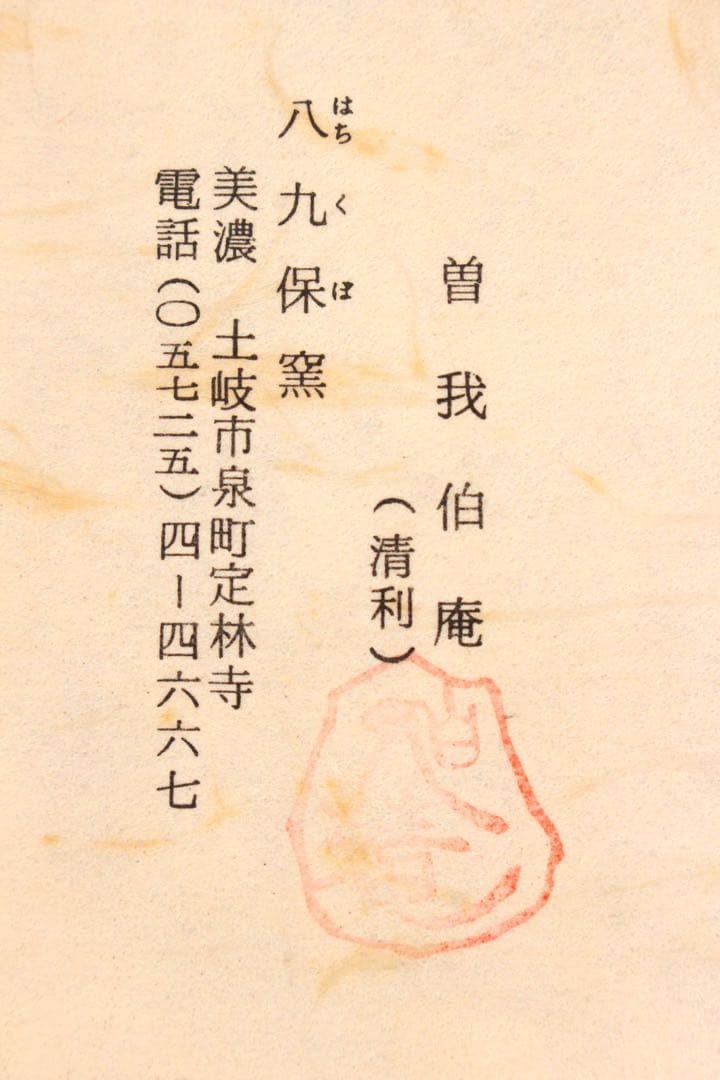 曽我伯庵
（清利）
八九保窯
はちくぼ
美濃　土岐市泉町定林寺
電話（〇五七二五）四ー四六六七